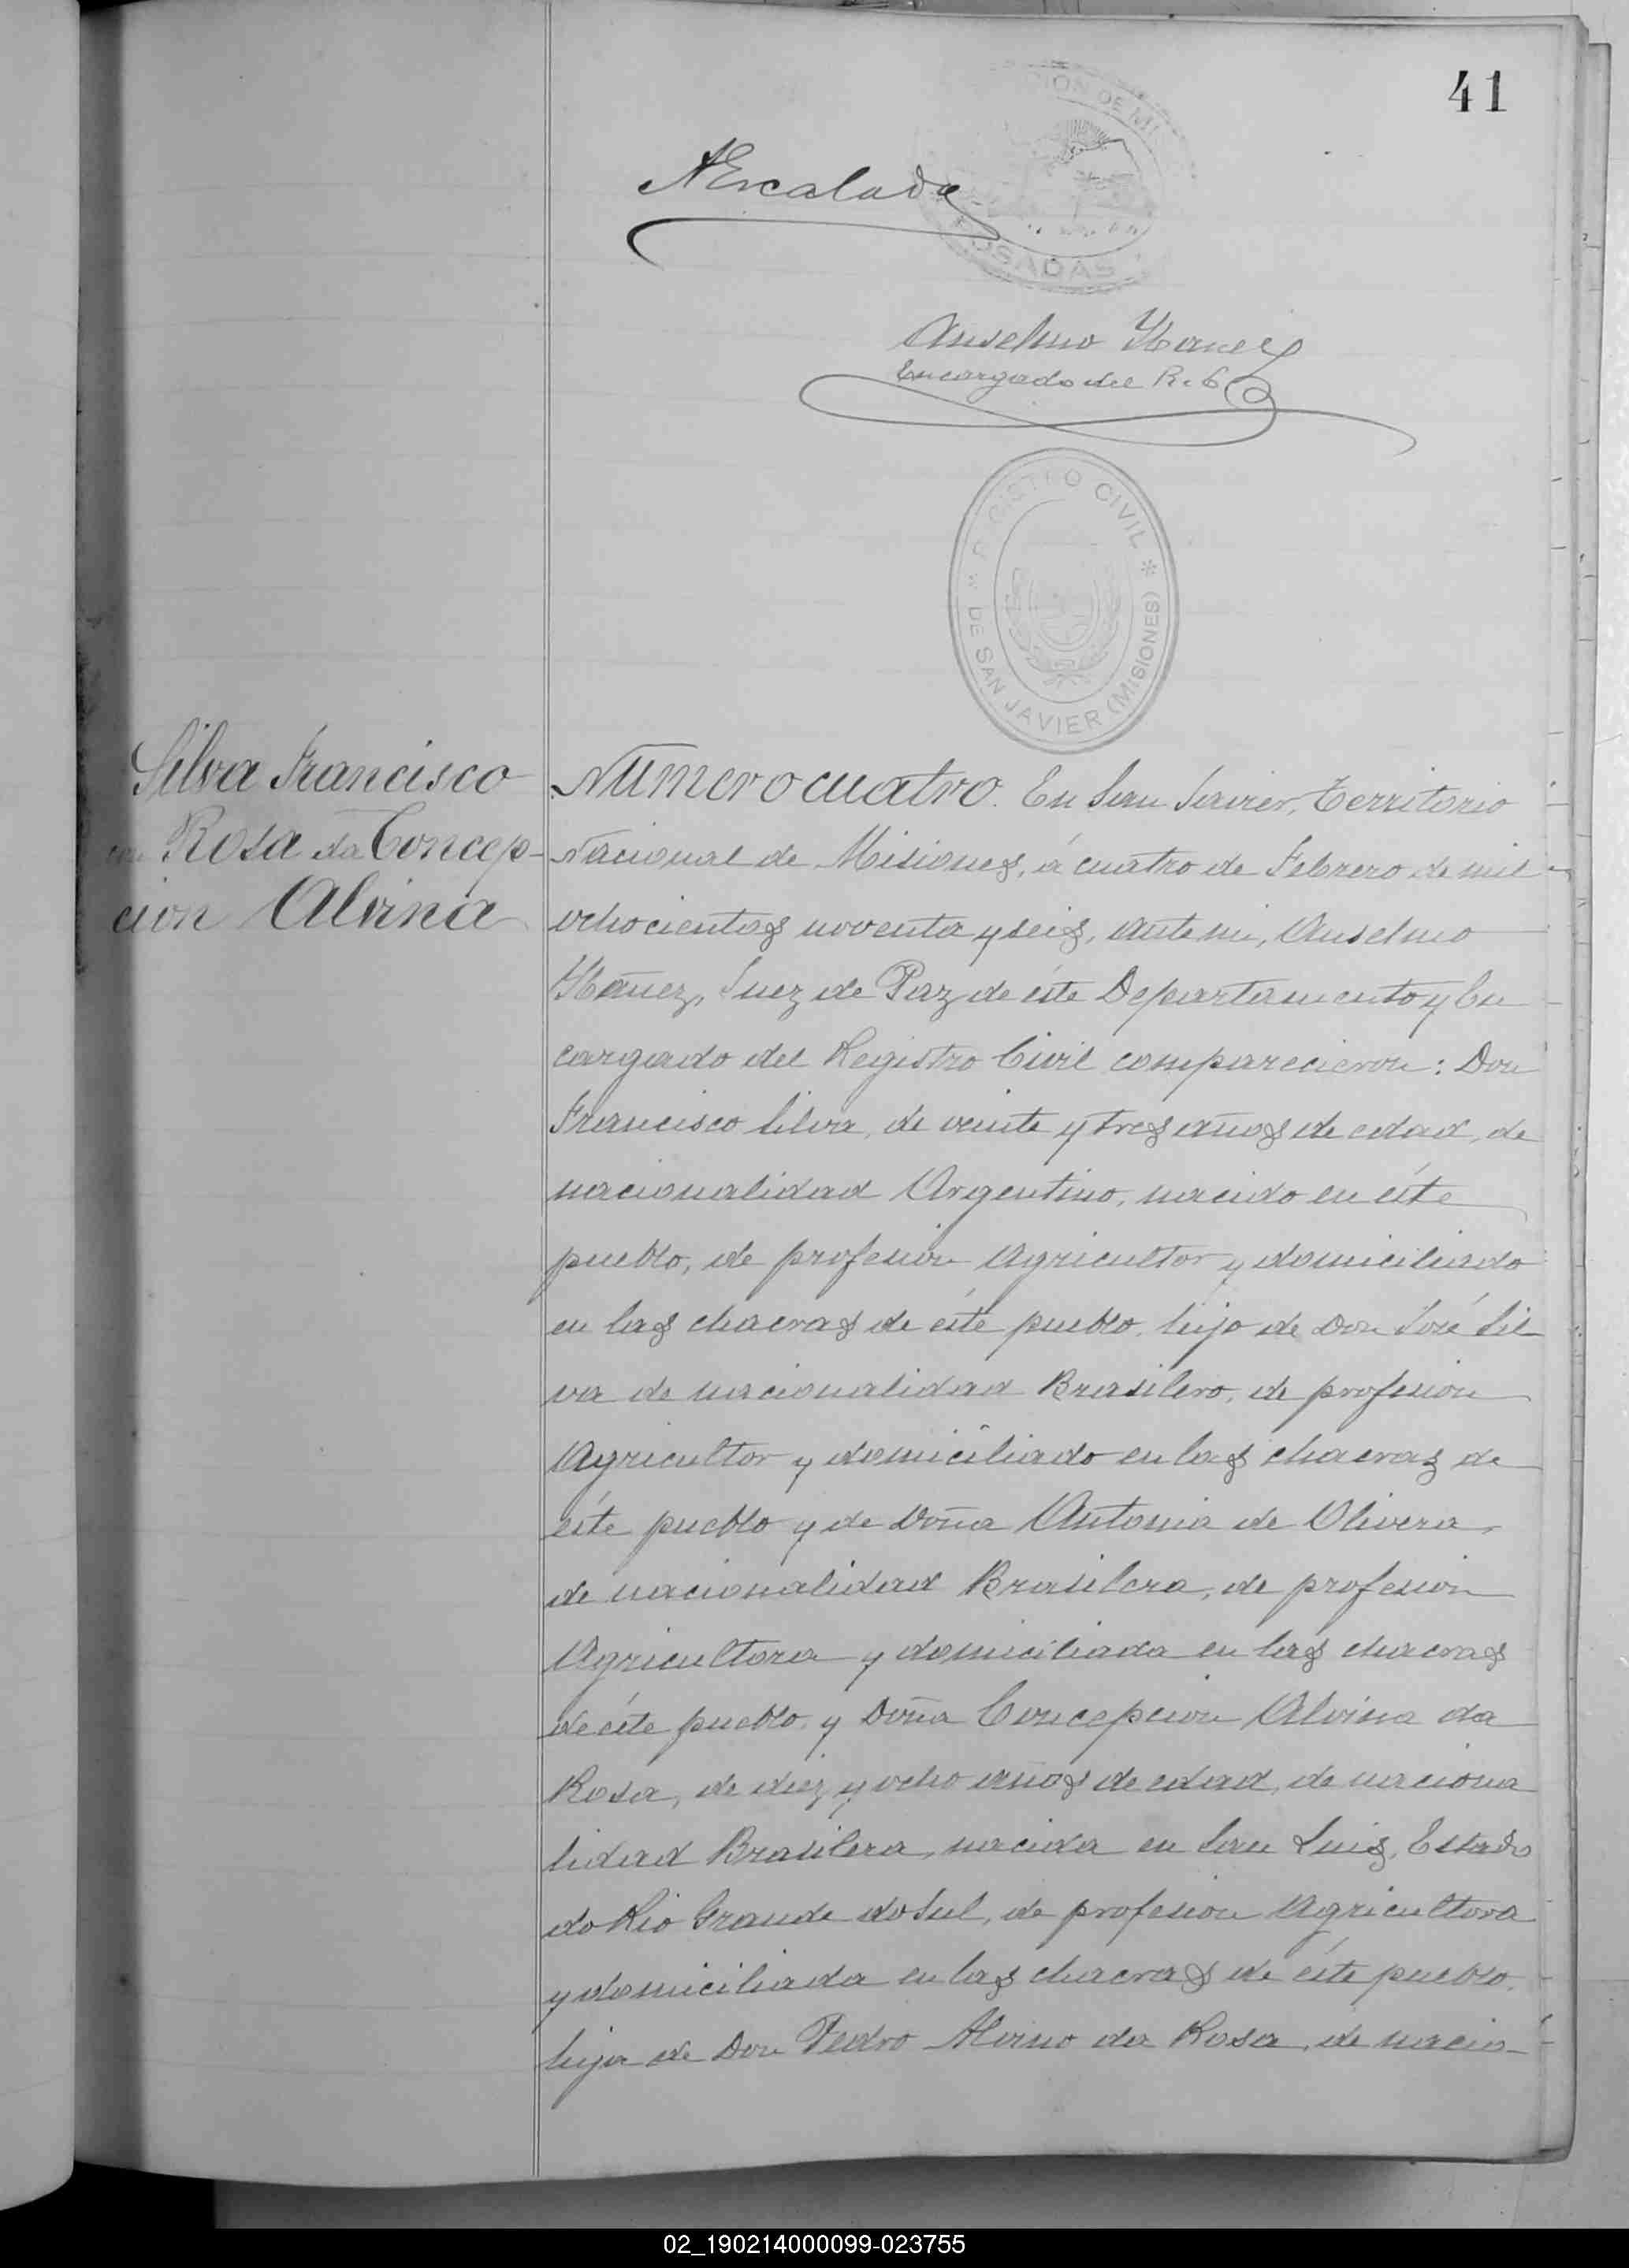 41
NEscalada
POSADAS
Anselmo Ybanez
Encargado del R. C
REGISTRO CIVIL
DE SAN JAVIER (MISIONES)
Silva Francisco
con Rosa da Concep-
cion Alvina
Número cuatro. En San Javier, Territorio
Nacional de Misiones, á cuatro de Febrero de mil
ochocientos noventa y seis, ante mi, Anselmo
Ybañez, Juez de Paz de éste Departamento y En
cargado del Registro Civil comparecieron: Don
Francisco Silva, de veinte y tres años de edad, de
nacionalidad Argentino, nacido en éste
pueblo, de profesion Agricultor y domiciliado
en las chacras de éste pueblo, hijo de Don José Sil
va de nacionalidad Brasilero, de profesion
Agricultor y domiciliado en las chacras de
éste pueblo y de Doña Antonia de Olivera,
de nacionalidad Brasilera, de profesion
Agricultora y domiciliada en las chacras
de éste pueblo, y Doña Concepcion Alvina da
Rosa, de diez y ocho años de edad, de naciona
lidad Brasilera, nacida en San Luis, Estado
do Rio Grande do Sul, de profesion Agricultora
y domiciliada en las chacras de éste pueblo,
hija de Don Pedro Alvino da Rosa, de nacio-
02_190214000099-023755